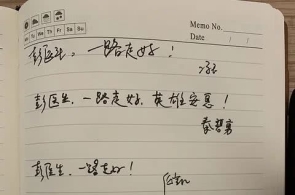 Memo No.
Mo Tu We Th Fr Sa Su
Date / /
彭医生，一路走好！
彭医生，一路走好，英雄安息！
彭医生，一路走好！